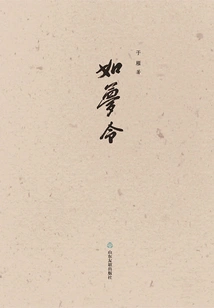 如梦令
于雁 著
山东友谊出版社